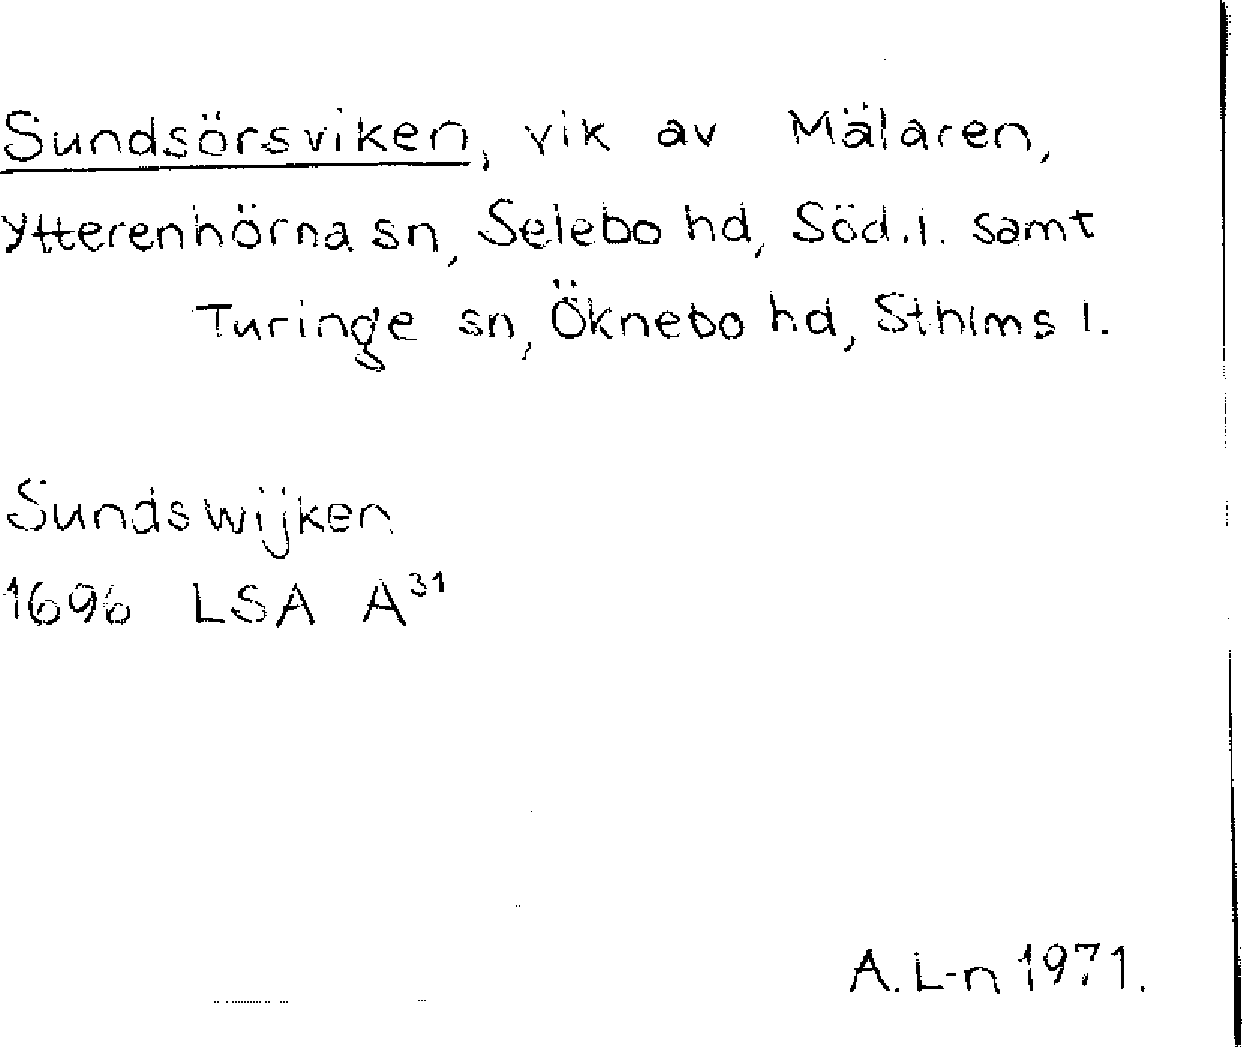 Sundsörsviken, vik av Mälaren,
Ytterenhörna sn, Selebo hd, Söd.l. samt
Turinge sn, Öknebo hd, Sthlms l.
Sundswijken
1696 LSA A³¹
A. L-n 1971.